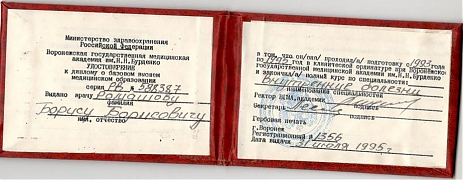 Министерство здравоохранения
Российской Федерации
Воронежская государственная медицинская
академия им.Н.Н.Бурденко
УДОСТОВЕРЕНИЕ
к диплому о базовом высшем
медицинском образовании
серия РВ № 598387
Выдано врачу Ромашову
фамилия
Борису Борисовичу
имя, отчество
в том, что он/она/ проходил/а/ подготовку с 1993 года
по 1995 год в клинической ординатуре при Воронежской
государственной медицинской академии им.Н.Н.Бурденко
и закончил/а/ полный курс по специальности:
Внутренние болезни
наименование специальностей
Ректор ВГМА, академик
подпись
Секретарь
подпись
Гербовая печать
г.Воронеж
Регистрационный № 1356
Дата выдачи 31 июля 1995 г.